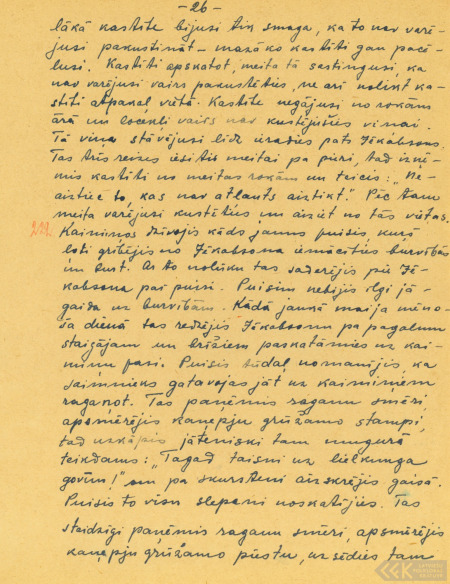 - 26 -
lākā kastīte bijusi tik smaga, ka to nav varē-
jusi pakustināt - mazāko kastīti gan pacē-
lusi. Kastīti apskatot, meita tā sastingusi, ka
nav varējusi vairs pakustēties, ne arī nolikt ka-
stīti atpakaļ vietā. Kastīte negājusi no rokām
ārā un locekļi vairs nav kustējušies viņai.
Tā viņa stāvējusi līdz ieradies pats Jēkabsons.
Tas trīs reizes iesitis meitai pa pieri, tad izņē-
mis kastīti no meitas rokām un teicis: "Ne-
aiztiec to, kas nav atļauts aiztikt." Pēc tam
meita varējusi kustēties un aiziet no tās vietas.
Kaimiņos dzīvojis kāds jauns puisis kurš
ļoti gribējis no Jēkabsona iemācīties burvības
un burt. Ar to nolūku tas saderējis pie Jē-
kabsona par puisi. Puisim nebijis ilgi jā-
gaida uz burvībām. Kādā jaukā maija mēne-
ša dienā tas redzējis Jēkabsonu pa pagalmu
staigājam un brīžiem paskatāmies uz kai-
miņu pusi. Puisis tūdaļ nomanījis, ka
saimnieks gatavojas jāt uz kaimiņiem
raganot. Tas paņēmis raganu smēri
apsmērējis kaņepju grūžamo stampi,
tad uzkāpis jāteniski tam mugurā
teikdams: "Tagad taisni uz lielkunga
govīm!" un pa skursteni aizskrējis gaisā.
Puisis to visu slepeni noskatījies. Tas
steidzīgi paņēmis raganu smēri, apsmērējis
kaņepju grūžamo piestu, uzsēdies tam